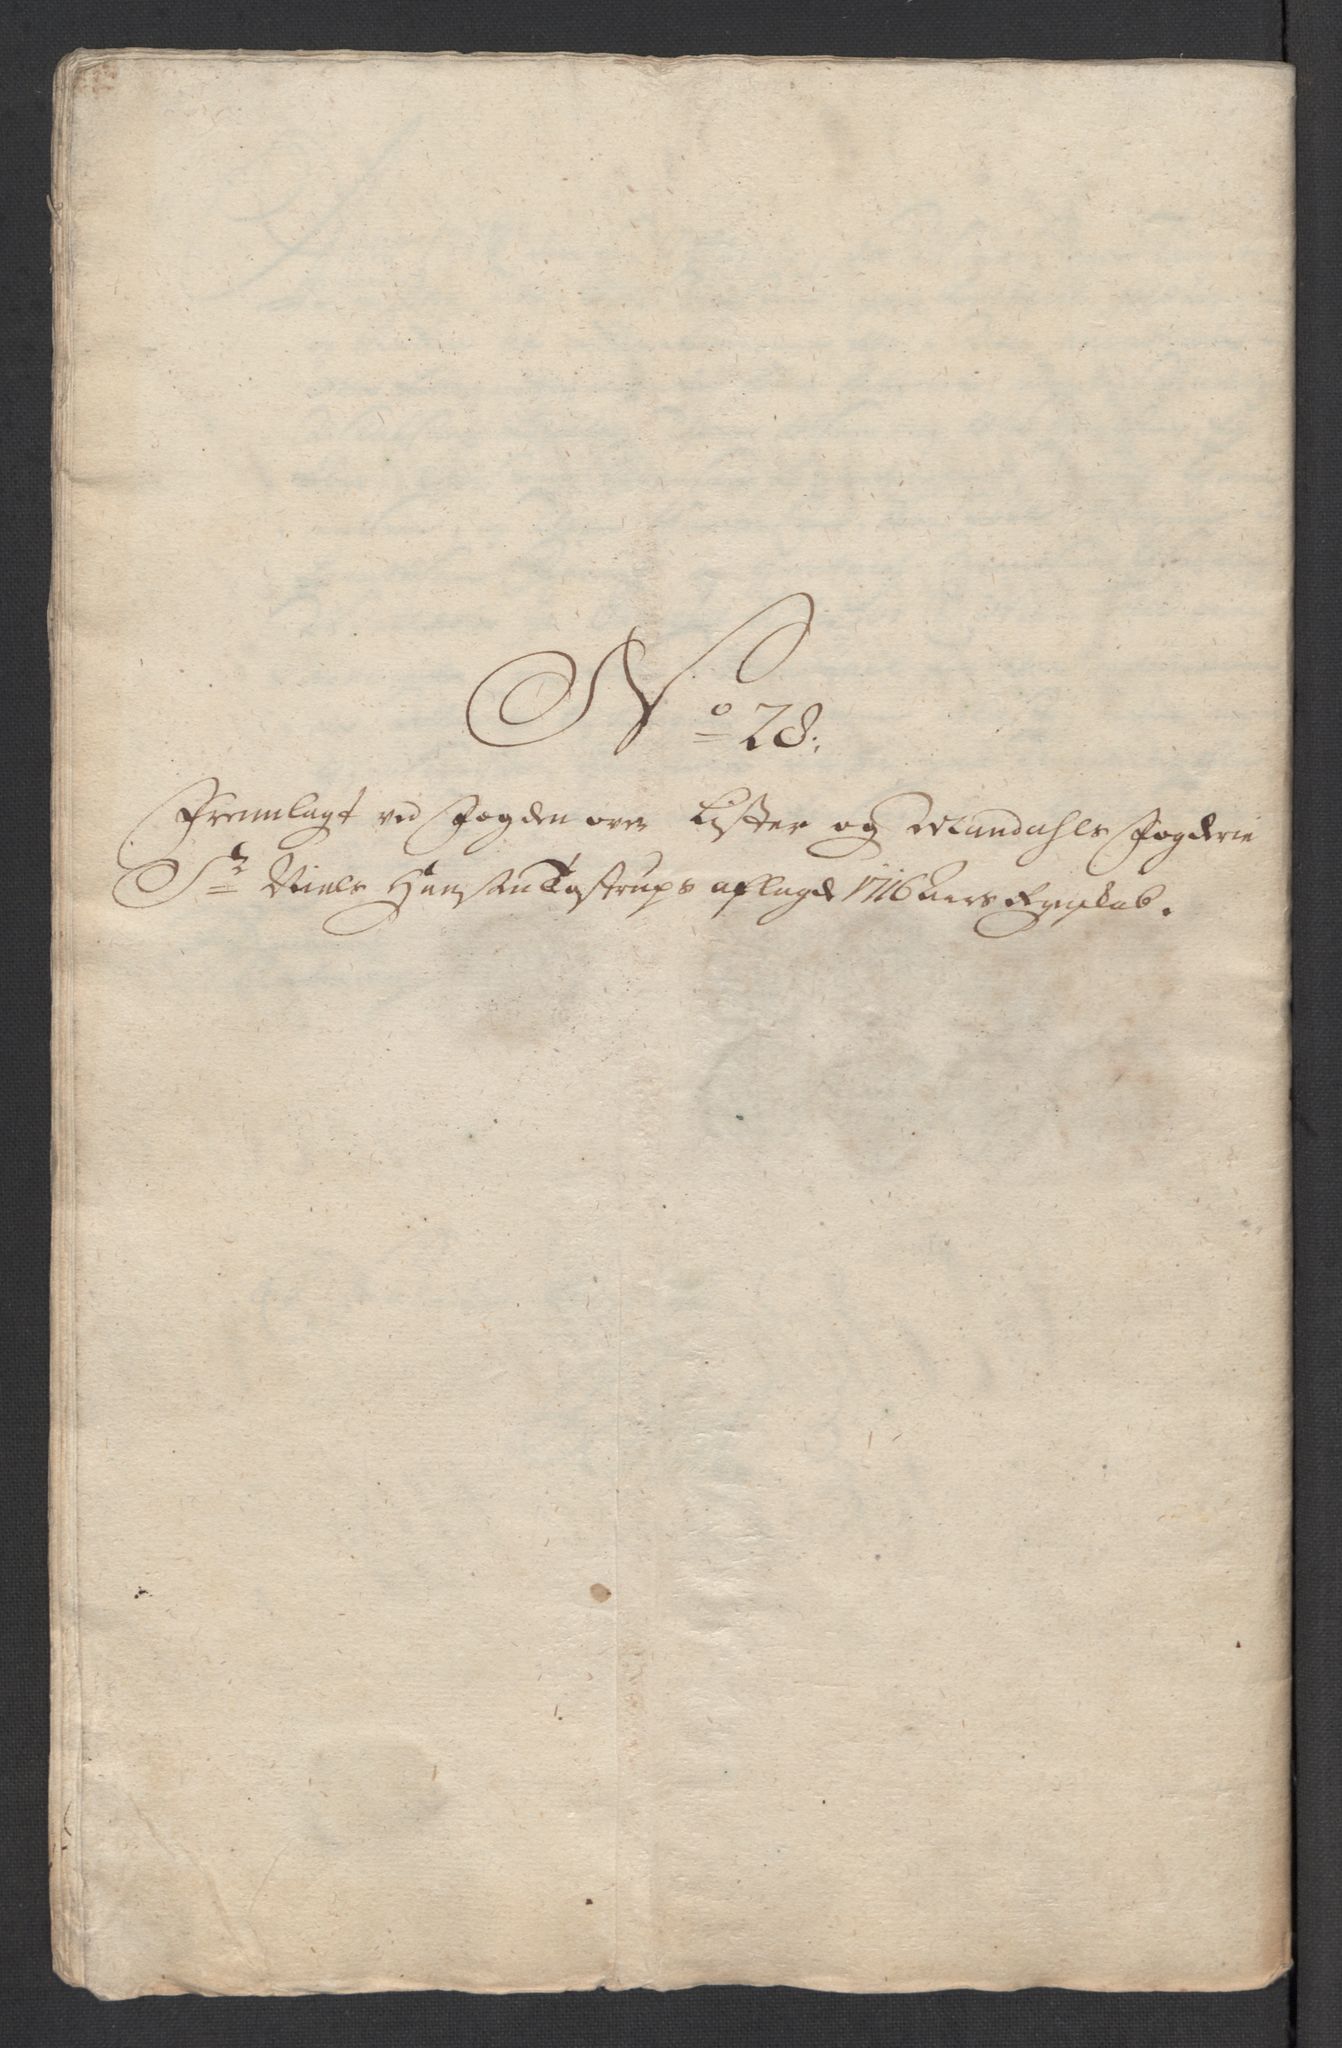 No 28.
Fremlagt ved Fogden over Lister og Mandahls Fogderie
Sr Niels Hansen Tostrups aflagde 1716 Aars Regnskab.